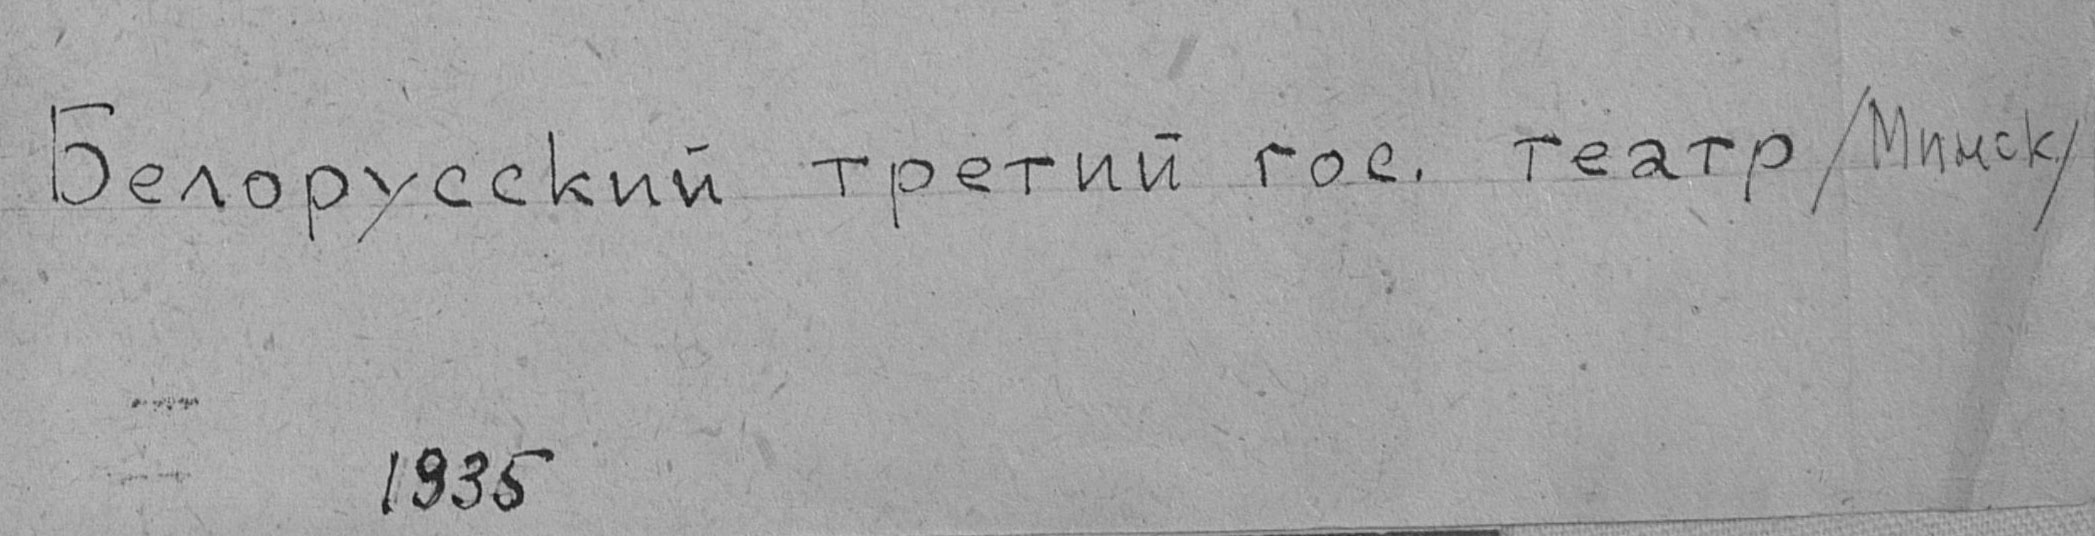 Белорусский третий гос. театр /Минск/
1935